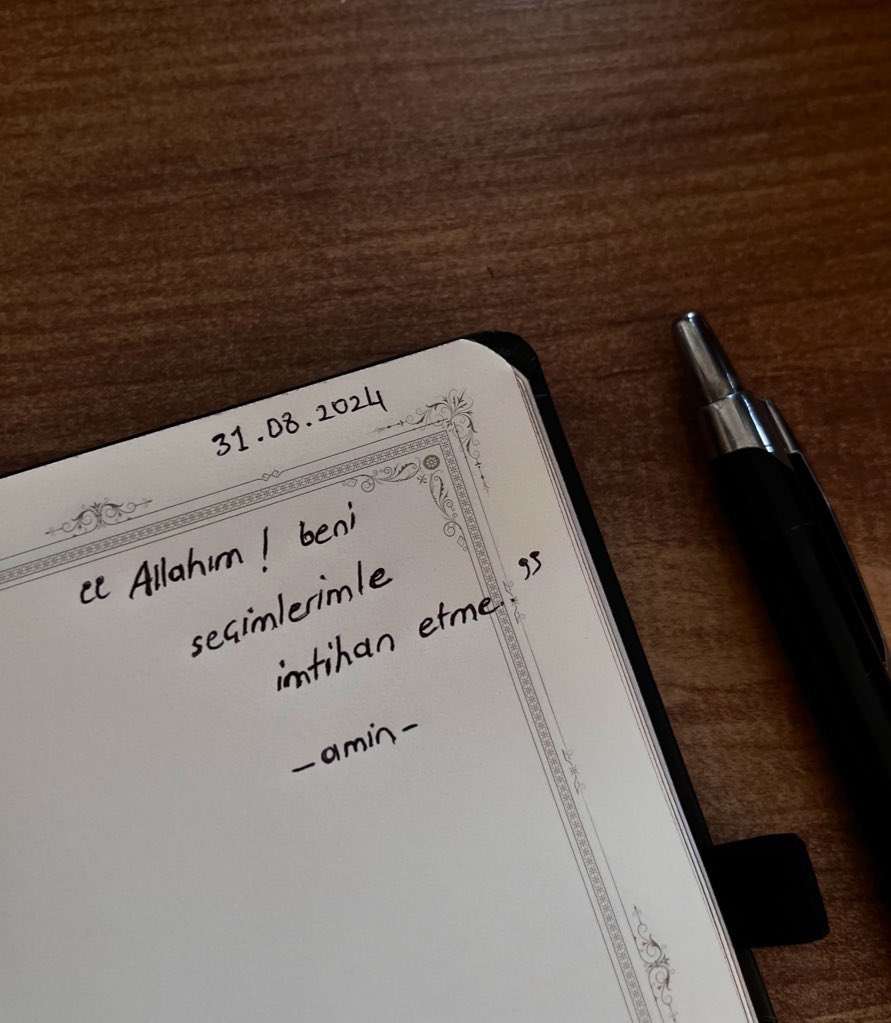 31.08.2024
“Allahım! beni
seçimlerimle
imtihan etme.”
-amin-